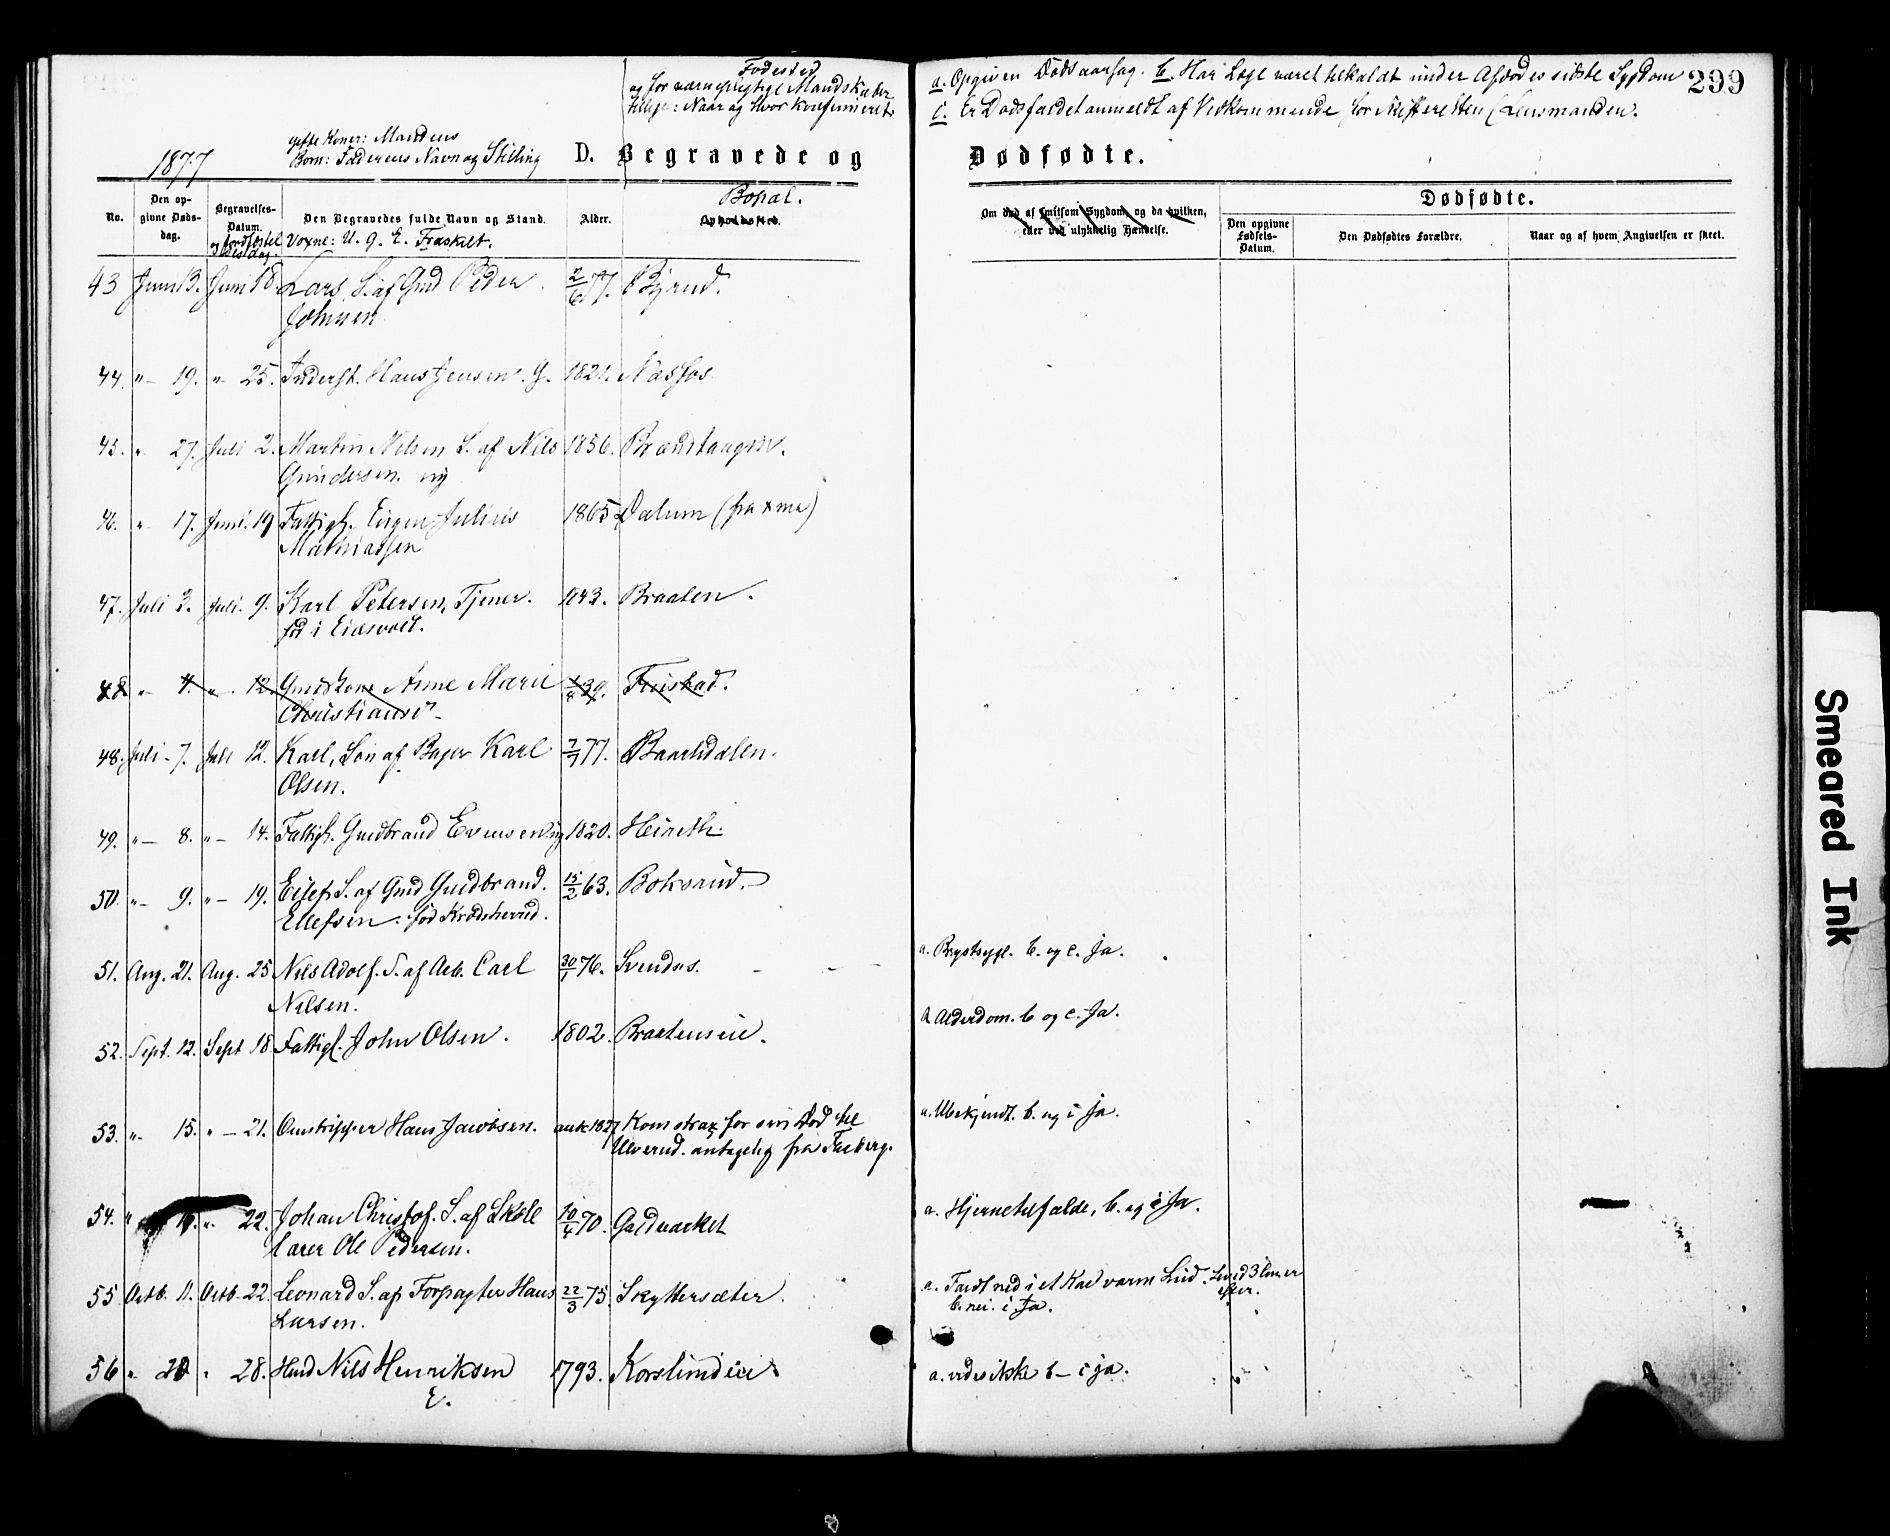 Fødested
og for værnepligtige Mandskaber
tillige: Naar og hvor konfirmeret.
gifte Koner: Mandens
Børn: Faderens Navn og Stilling
1877
D. Begravede og
No.
Den opgivne Døds-dag.
Begravelses-Datum.
Den Begravedes fulde Navn og Stand.
Voxne: U. g. E. Fraskilt.
Alder.
Bopæl.
Opholdssted.
43 Juni 13. Juni 18. Lars S. af Gmd Peder 2/6 77. Bjrud.
Johnsen
44. "– 19. "– 25. Inderst. Hans Jensen. g. 1821. Næsfos.
45. " 27. Juli 2. Martin Nilsen S. af Nils 1856. Brændtangen.
Gundersen. ug
46. " 17. Juni. 19 Fattigl. Eugen Julius 1865 Dælum (fra Xma)
Mathiassen
47. Juli 3. Juli. 9. Karl Petersen, Tjener. 1843. Braaten.
fød i Eidsvold.
48 "– 4. "– 12. Gmdskone Anne Marie 39. Fristad.
Christiansd.
48. Juli – 7. Juli 12. Karl, Søn af Bager Karl 7/7 77. Baarsdalen.
Olsen.
49. "– 8. "– 14. Fattigl. Gudbrand Evensen ug 1820. Heieth.
50. "– 9. "– 19. Eilef S. af Gmd Gudbrand. 15/2 63. Boksrud.
Ellefsen. fød Krødsherred.
51. Aug. 21. Aug. 25 Nils Adolf. S. af Arb. Carl 30/1 76. Svendss.
Nilsen.
52. Sept. 12. Sept 18 Fattigl. John Olsen. 1802. Braateneie.
53. "– 15. "– 21. Omstripper Hans Jacobsen. ant. 1827 Kom strax for sin Død til
Ulverud. antagelig fra Faaberg.
54. " 22. Johan Christof. S. af Skole 10/4 70. Guldværket
lærer Ole Pedersen.
55 Octb. 11. Octb. 22. Leonard S. af Forpagter Hans 22/3 75. Skyttersæter.
Larsen.
56 " 20 " 28. Hmd Nils Henriksen 1793. Korslundeie
E.
299
a. Opgiven Dødsaarsag. b. Har Læge været tilkaldt under Afdødes sidste Sygdom
c. Er Dødsfaldet anmeldt af Vedkommende for Skifteretten (Lensmanden.
Dødfødte.
Om død af smitsom Sygdom, og da hvilken,
eller ved ulykkelig Hændelse.
Dødfødte.
Den opgivne Fødsels-Datum.
Den Dødfødtes Forældre.
Naar og af hvem Angivelsen er skeet.
a. Brystsygd. b. og c. Ja.
a Alderdom. b og c. Ja.
a. Ubekjendt. b. og c ja.
a. Hjernetilfælde, b. og c Ja.
a. Faldt ned i et Kar varm Lud. Leved 3 Timer
efter.
b. nei. c. Ja.
a. vides ikke b – c ja.
Smeared Ink